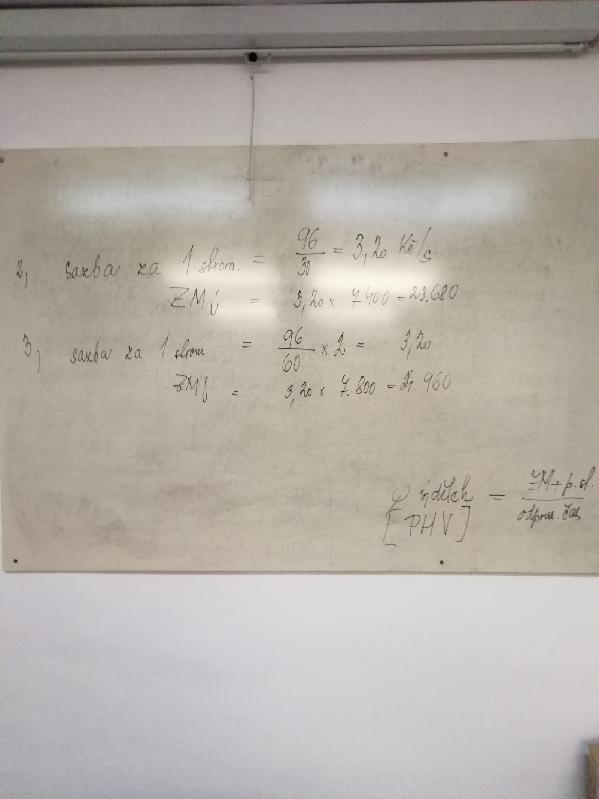 2, sazba za 1 strom. = 96/30 = 3,20 Kč/s
ZMÚ = 3,20 x 7400 = 23.680
3, sazba za 1 strom = 96/60 x 2 = 3,20
ZMÚ = 3,20 x 7.800 = 24.960
φ výdělek = ZM + p.sl. / odprac. čas
[PHV]